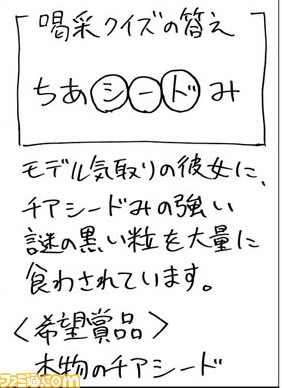 喝采クイズの答え
ちあシードみ
モデル気取りの彼女に、
チアシードみの強い
謎の黒い粒を大量に
食わされています。
〈希望賞品〉
本物のチアシード
ファミ通.com